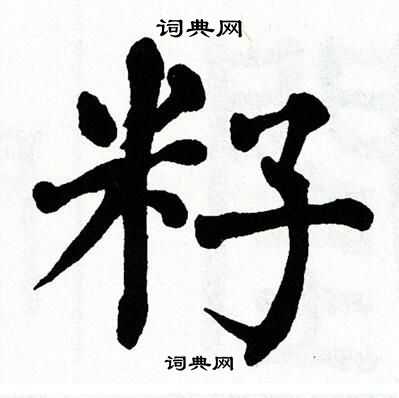 词典网
籽
词典网